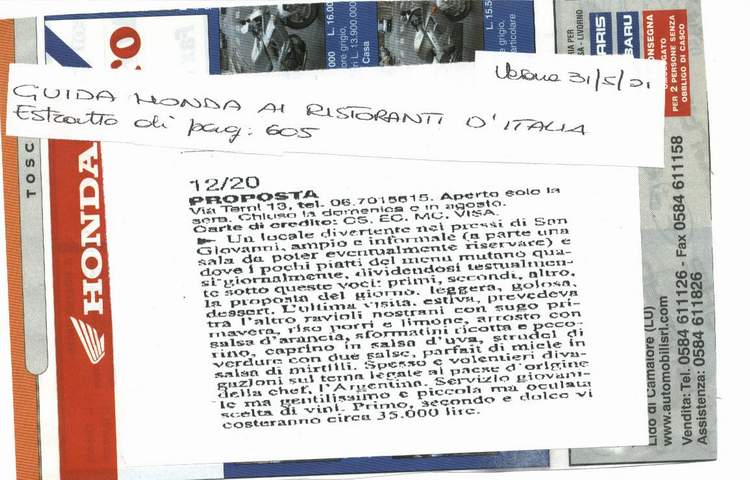 L. 16.000
L. 15.5
ore grigio,
L. 13.900.000
Casa
grigio,
articolare
TOSC
HONDA
Verona 31/5/01
GUIDA HONDA AI RISTORANTI D'ITALIA
Estratto di pag: 605
12/20
PROPOSTA
Via Terni 13, tel. 06.7015615. Aperto solo la
sera. Chiuso la domenica e in agosto.
Carte di credito: CS. EC. MC. VISA.
► Un locale divertente nei pressi di San
Giovanni, ampio e informale (a parte una
sala da poter eventualmente riservare) e
dove i pochi piatti del menu mutano qua-
si giornalmente, dividendosi testualmen-
te sotto queste voci: primi, secondi, altro,
la proposta del giorno, leggera, golosa,
dessert. L'ultima visita, estiva, prevedeva
tra l'altro ravioli nostrani con sugo pri-
mavera, riso porri e limone, arrosto con
salsa d'arancia, sformatini ricotta e peco-
rino, caprino in salsa d'uva, strudel di
verdure con due salse, parfait di miele in
salsa di mirtilli. Spesso e volentieri diva-
gazioni sul tema legate al paese d'origine
della chef, l'Argentina. Servizio giovani-
le ma gentilissimo e piccola ma oculata
scelta di vini. Primo, secondo e dolce vi
costeranno circa 35.000 lire.
PER
- LIVORNO
ARIS
BARU
ONSEGNA
PER 2 PERSONE SENZA
OBBLIGO DI CASCO
Lido di Camaiore (LU)
www.automobilisrl.com
Vendita: Tel. 0584 611126 - Fax 0584 611158
Assistenza: 0584 611826